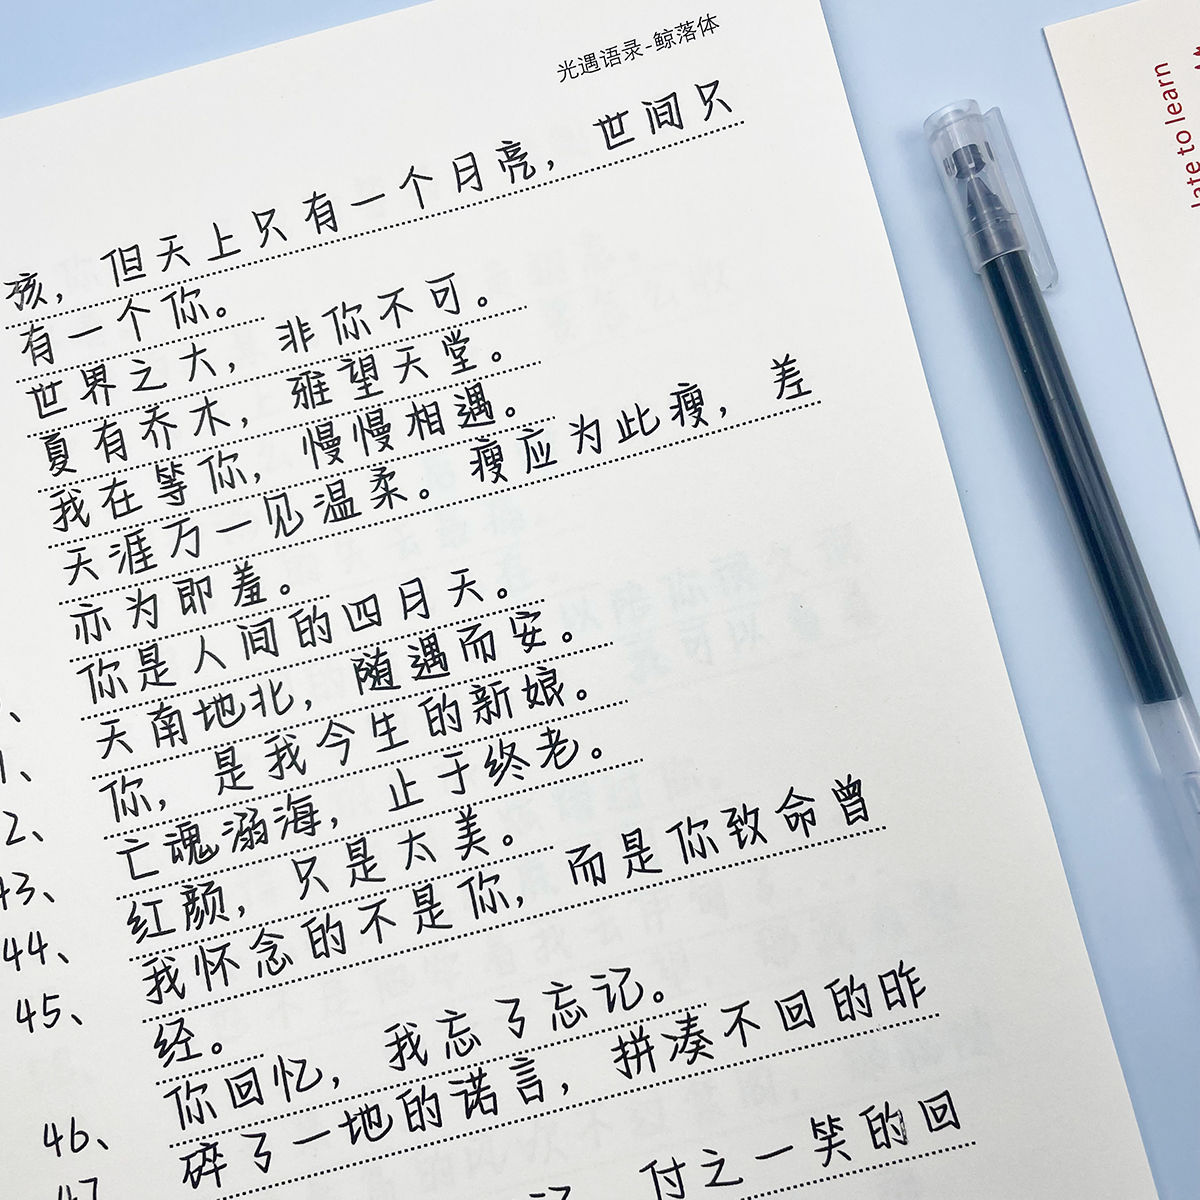 光遇语录-鲸落体
世间只
孩，但天上只有一个月亮，
有一个你。
世界之大，非你不可。
夏有乔木，雅望天堂。
我在等你，慢慢相遇。
天涯万一见温柔。瘦应为此瘦，差
亦为即羞。
你是人间的四月天。
天南地北，随遇而安。
你，是我今生的新娘。
亡魂溺海，止于终老。
红颜，只是太美。
我怀念的不是你，而是你致命曾
经。
你回忆，我忘了忘记。
碎了一地的诺言，拼凑不回的昨
付之一笑的回
1、
2、
43、
44、
45、
46、
47
late to learn